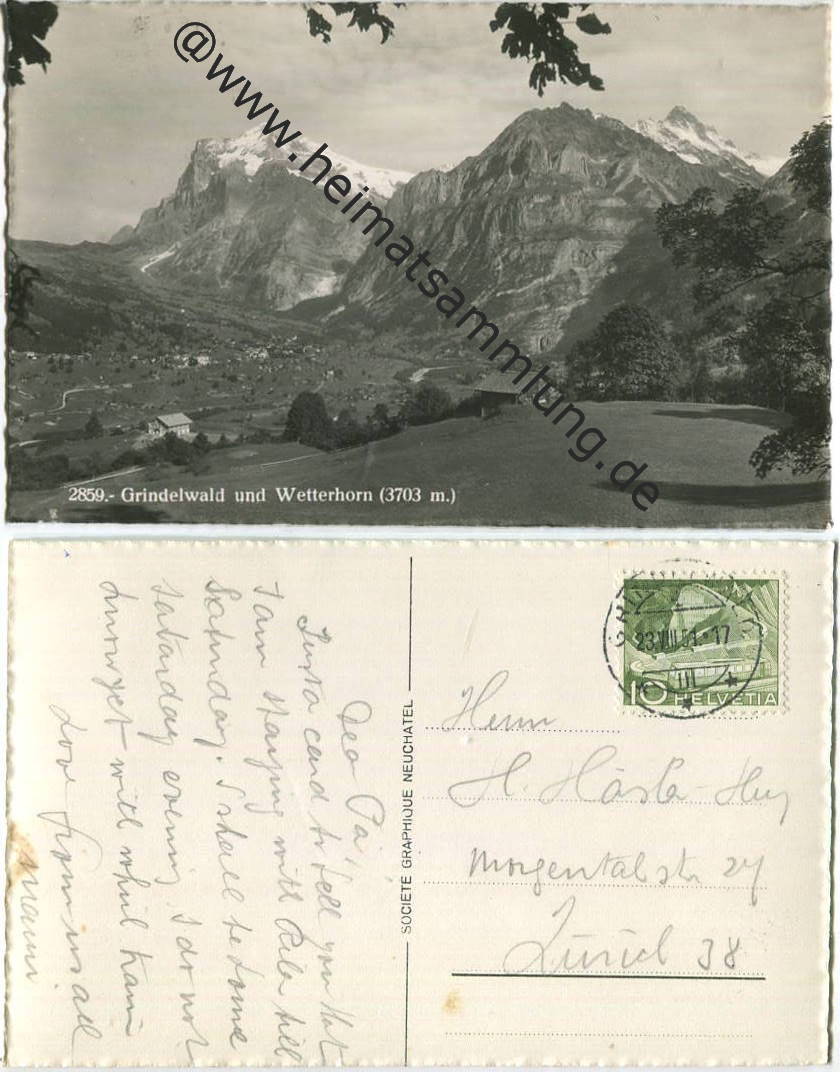 @www.heimatsammlung.de
2859.- Grindelwald und Wetterhorn (3703 m.)
Dear Pa,
Just a card to tell you that
I am staying with till
Saturday. I shall be home
Saturday evening. I do not
will train
Love from us all
mami
SOCIETE GRAPHIQUE NEUCHATEL
23.VIII.51.-17
10 HELVETIA
Herrn
H.
Morgentalstr 27
Zürich 38